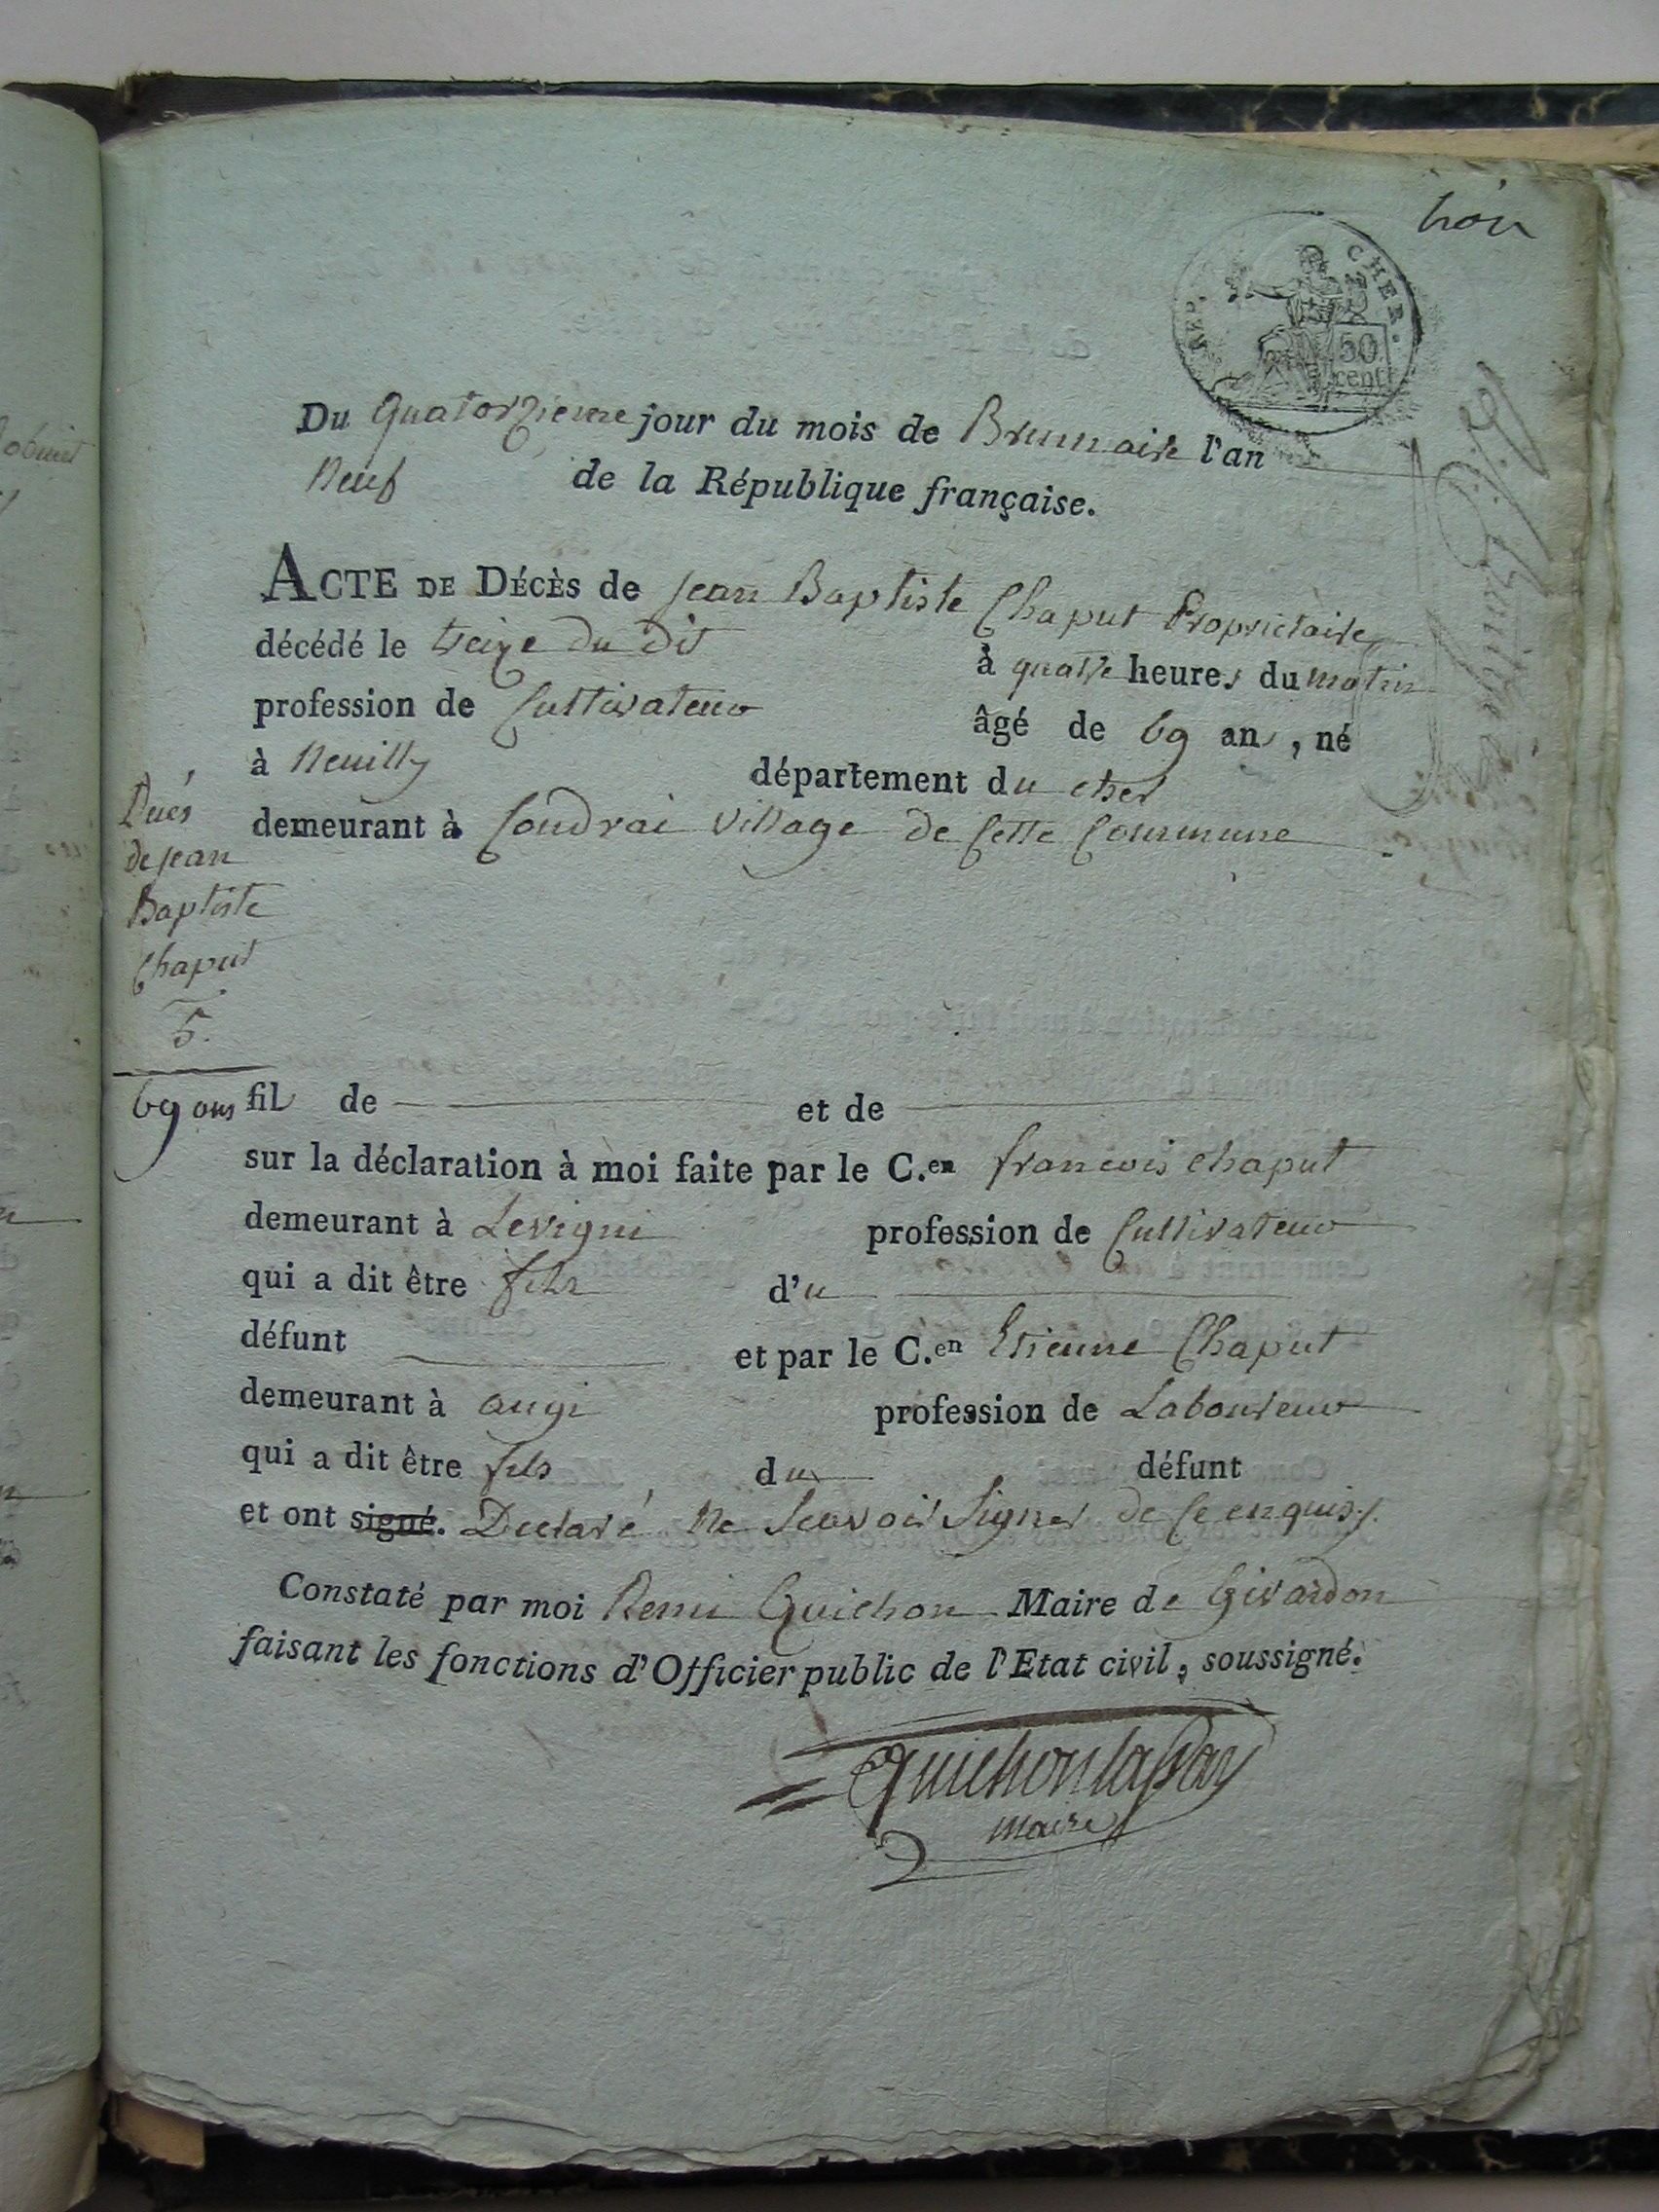 trois
REP. CHER.
50
cent
Du quatorzieme jour du mois de Brumaire l'an
Neuf de la République française.
ACTE DE DÉCÈS de Jean Baptiste Chaput Propriétaire
décédé le treize du dit à quatre heures du matin
profession de Cultivateur âgé de 69 ans, né
à Neuilly département du cher
demeurant à Coudrai village de Cette Commune
Décés
de Jean
Baptiste
Chaput
5.
69 ans
fils de et de
sur la déclaration à moi faite par le C.en francois Chaput
demeurant à Levigni profession de Cultivateur
qui a dit être fils d'u
défunt et par le C.en Etienne Chaput
demeurant à augi profession de Laboureur
qui a dit être fils du défunt
et ont signé. Declaré ne Scavoir Signer de ce enquis ./.
Constaté par moi Remi Quichon Maire de Givardon
faisant les fonctions d'Officier public de l'Etat civil, soussigné.
maire